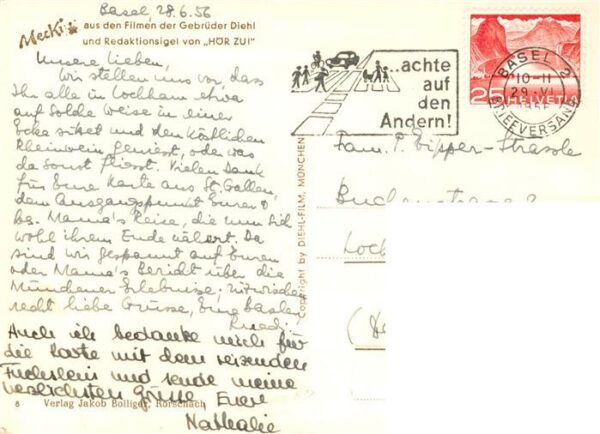 Basel, 28.6.56
Mecki aus den Filmen der Gebrüder Diehl
und Redaktionsigel von „HÖR ZU!"
Unsere Lieben,
Wir stellen uns vor, dass
Ihr alle in Lochham etwa
auf solche Weise in einer
Ecke sitzet und den köstlichen
Rheinwein geniesst, oder was
da sonst fliesst. Vielen Dank
für Eure Karte aus St. Gallen,
dem Ausgangspunkt Eurer &
bes. Mama's Reise, die nun sich
wohl ihrem Ende nähert. Da
sind wir gespannt auf Euren
oder Mama's Bericht über die
Münchener Erlebnisse; inzwischen
recht liebe Grüsse, Eure Basler
Ruedi
Auch ich bedanke mich für
die Karte mit dem reizenden
Füchslein und sende meine
herzlichsten Grüsse Eure
Nathalie
8 Verlag Jakob Bolliger, Rorschach
Copyright by DIEHL-FILM, MÜNCHEN
...achte
auf
den
Andern!
BASEL 2
10-11
29. VI.
1956
BRIEFVERSAND
25 HELVETIA
Fam. P. Tipper-Strassle
Loch